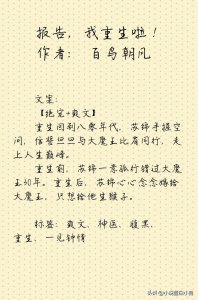 报告,我重生啦!
作者: 百鸟朝凤
文案:
【绝宠+爽文】
重生回到八零年代,苏锦手握空
间,信誓旦旦与大魔王比肩同行,走
上人生巅峰。
重生前,苏锦一意孤行错过大魔
王50年。重生后,苏锦心心念念嫁给
大魔王,只想给他生猴子。
标签:爽文、神医、腹黑、
重生、一见钟情